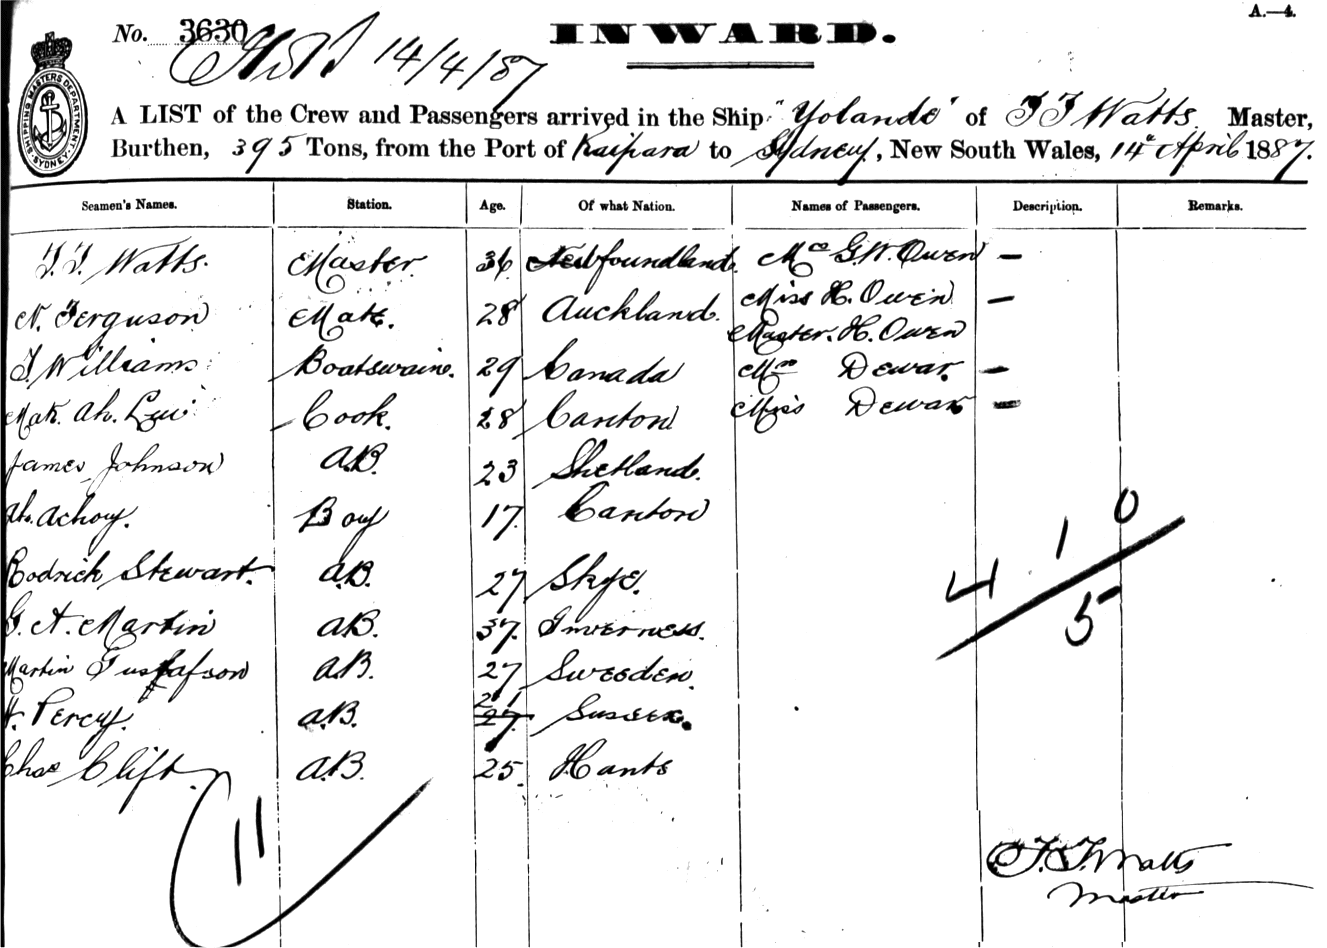 A.—4.
No. 3630
INWARD.
14/4/87
SHIPPING MASTERS DEPARTMENT SYDNEY
A LIST of the Crew and Passengers arrived in the Ship "Yolande" of T T Watts Master,
Burthen, 395 Tons, from the Port of Kaipara to Sydney, New South Wales, 14th April 1887.
Seamen's Names. Station. Age. Of what Nation. Names of Passengers. Description. Remarks.
T. T. Watts. Master 36 Newfoundland. Mrs G. W. Owen —
Miss H. Owen —
N. Ferguson Mate. 28 Auckland.
Master. H. Owen
T. Williams Boatswaine. 29 Canada Mrs Dewar. —
Mak. Ah. Lui Cook. 28 Canton Miss Dewar —
James Johnson A.B. 23 Shetland.
Ah. Achoy. Boy 17 Canton
Rodrick Stewart. A.B. 27 Skye.
G. A. Martin A.B. 37. Inverness.
Martin Gustafson A.B. 27 Sweeden.
H. Percy. A.B. 21 27. Sussex.
Chas Clift. A.B. 25. Hants
4 1 0
5
11
T. T. Watts
Master